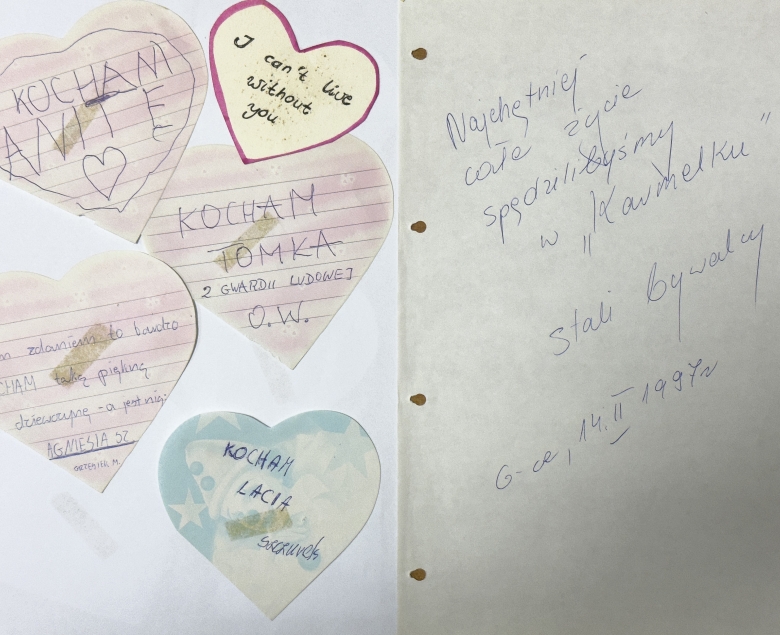 KOCHAM
ANITĘ
I can't live
without
you
KOCHAM
TOMKA
Z GWARDII LUDOWEJ
O.W.
zdaniem to bardzo
taką piękną
dziewczynę - a jest nią:
AGNESIA SZ
KOCHAM
LACIA
Szczurek
Najchętniej
całe życie
spędzilibyśmy
w „Karmelku"
Stali bywalcy
G-ce, 14.II 1997r